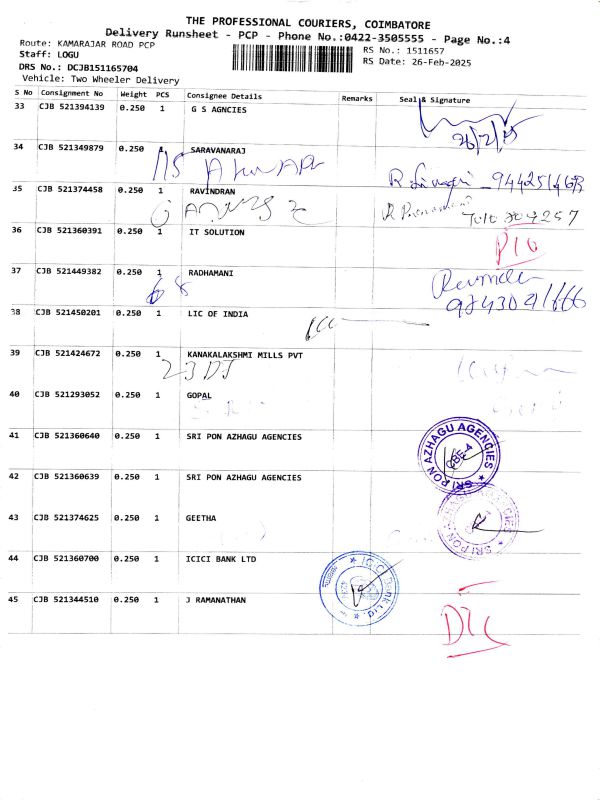 THE PROFESSIONAL COURIERS, COIMBATORE
Delivery Runsheet - PCP - Phone No.:0422-3505555 - Page No.:4
Route: KAMARAJAR ROAD PCP
RS No.: 1511657
Staff: LOGU
RS Date: 26-Feb-2025
DRS No.: DCJB151165704
Vehicle: Two Wheeler Delivery
S No Consignment No Weight PCS Consignee Details Remarks Seal & Signature
33 CJB 521394139 0.250 1 G S AGNCIES
26/2/25
34 CJB 521349879 0.250 1 SARAVANARAJ
35 CJB 521374458 0.250 1 RAVINDRAN
36 CJB 521360391 0.250 1 IT SOLUTION
37 CJB 521449382 0.250 1 RADHAMANI
68
38 CJB 521450201 0.250 1 LIC OF INDIA
39 CJB 521424672 0.250 1 KANAKALAKSHMI MILLS PVT
40 CJB 521293052 0.250 1 GOPAL
41 CJB 521360640 0.250 1 SRI PON AZHAGU AGENCIES
SRI PON AZHAGU AGENCIES
CBE-4
42 CJB 521360639 0.250 1 SRI PON AZHAGU AGENCIES
43 CJB 521374625 0.250 1 GEETHA
44 CJB 521360700 0.250 1 ICICI BANK LTD
ICICI Bank Ltd.
45 CJB 521344510 0.250 1 J RAMANATHAN